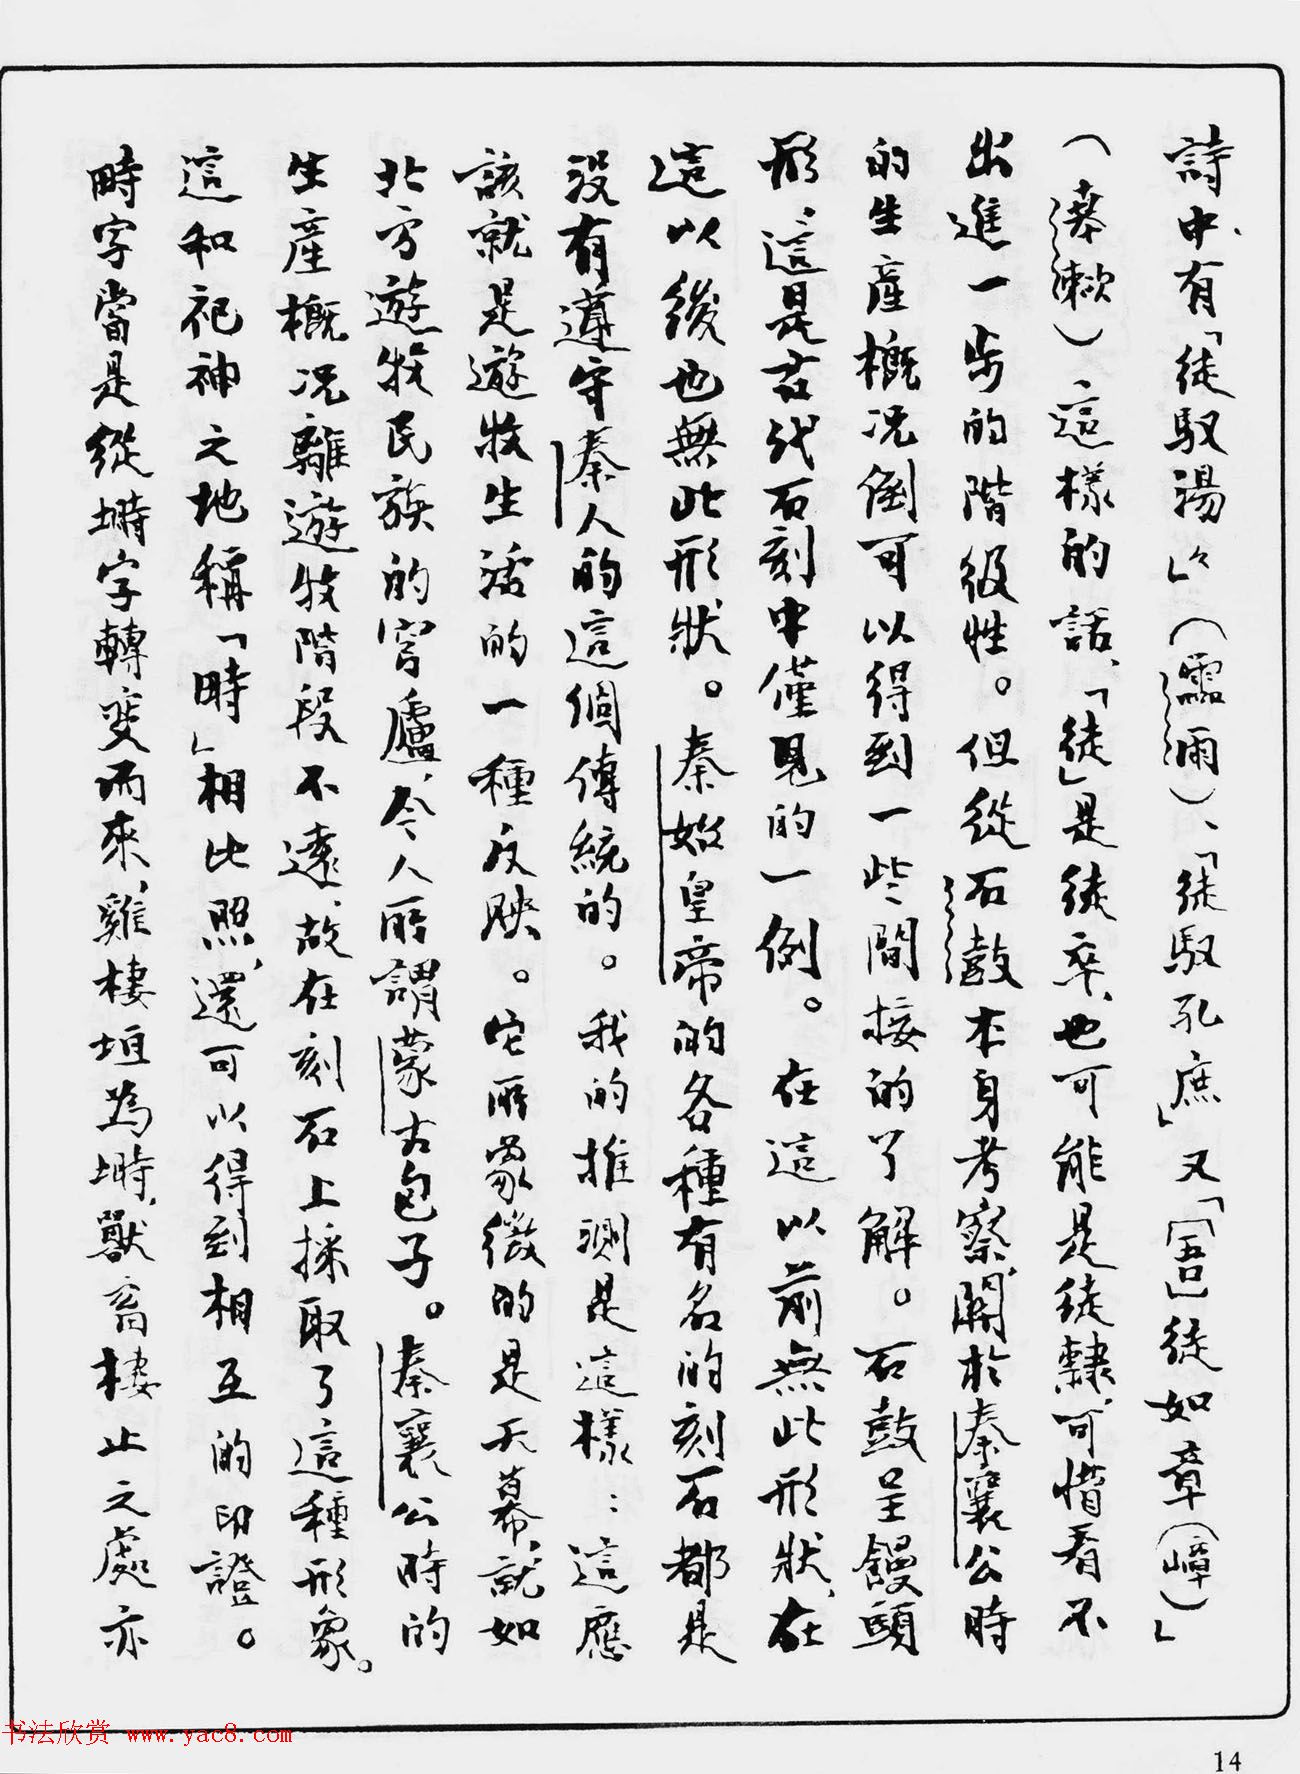 詩中有「徒馭湯々」（霝雨）、「徒馭孔庶」又「［吾］徒如章（嶂）」
（𠦪敕）這樣的話，「徒」是徒卒，也可能是徒隸，可惜看不
出進一步的階級性。但從石鼓本身考察，關於秦襄公時
的生產概況倒可以得到一些間接的了解。石鼓呈饅頭
形，這是古代石刻中僅見的一例。在這以前無此形狀，在
這以後也無此形狀。秦始皇帝的各種有名的刻石都是
沒有遵守秦人的這個傳統的。我的推測是這樣：這應
該就是遊牧生活的一種反映。它所象徵的是天幕，就如
北方遊牧民族的穹廬，今人所謂蒙古包子。秦襄公時的
生產概況離遊牧階段不遠，故在刻石上採取了這種形象。
這和祀神之地稱「畤」相比照，還可以得到相互的印證。
畤字當是從塒字轉變而來，雞棲垣為塒，獸畜棲止之處亦
書法欣赏 www.yac8.com
14